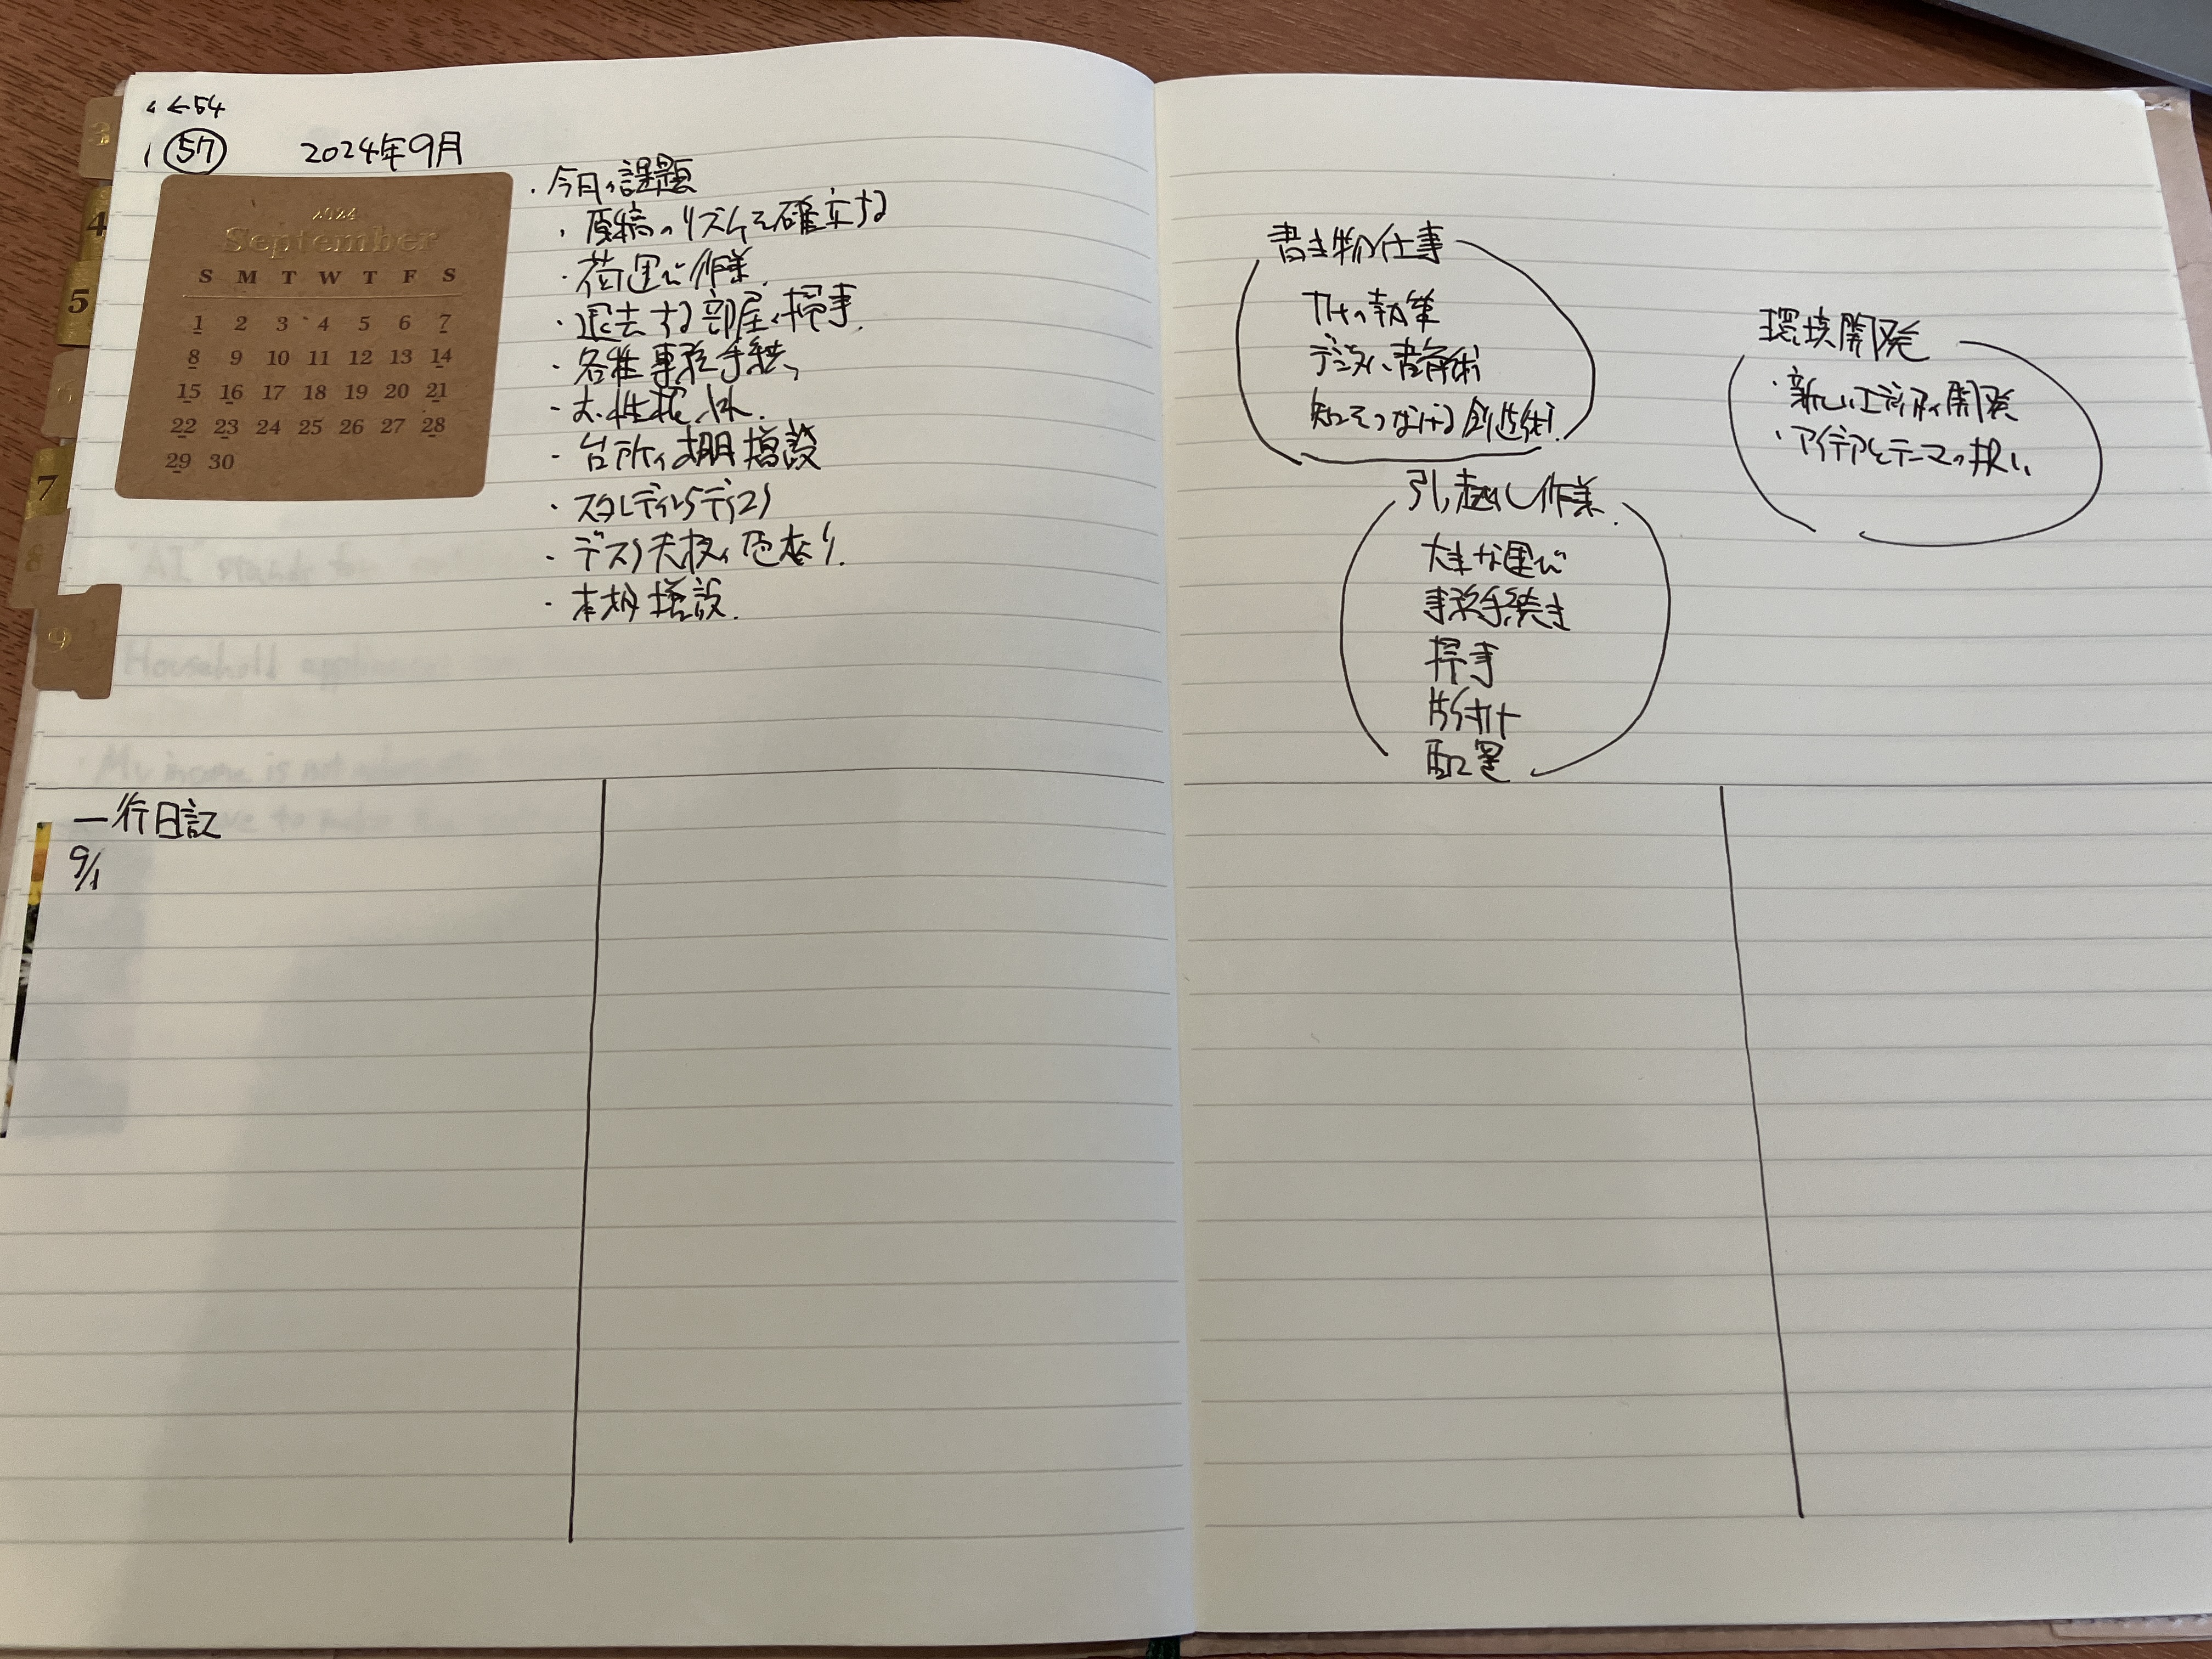 ←54
57
2024年9月
3
4
5
6
7
8
9
2024
September
S M T W T F S
1 2 3 4 5 6 7
8 9 10 11 12 13 14
15 16 17 18 19 20 21
22 23 24 25 26 27 28
29 30
・今月の課題
・原稿のリズムを確立する
・荷運び作業.
・退去する部屋の掃事.
・各種事務手続き
・台所の棚増設
・スタンディングデスク
・デスク天板の色塗り.
・本棚増設.
一行日記
9/1
書き物仕事
の執筆
デジタル書斎術
知をつなげる創造術.
引っ越し作業.
大きな運び
事務手続き
掃事
片付け
配置
環境開発
・新しいエディタの開発
・アイデアとテーマの扱い
"AI" stands for
Household
My income is not
to make